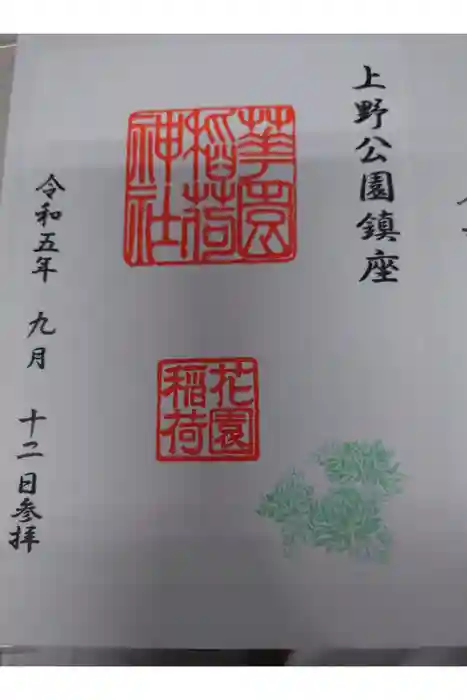 上野公園鎮座
華園稲荷神社
花園稲荷
令和五年 九月 十二日参拝